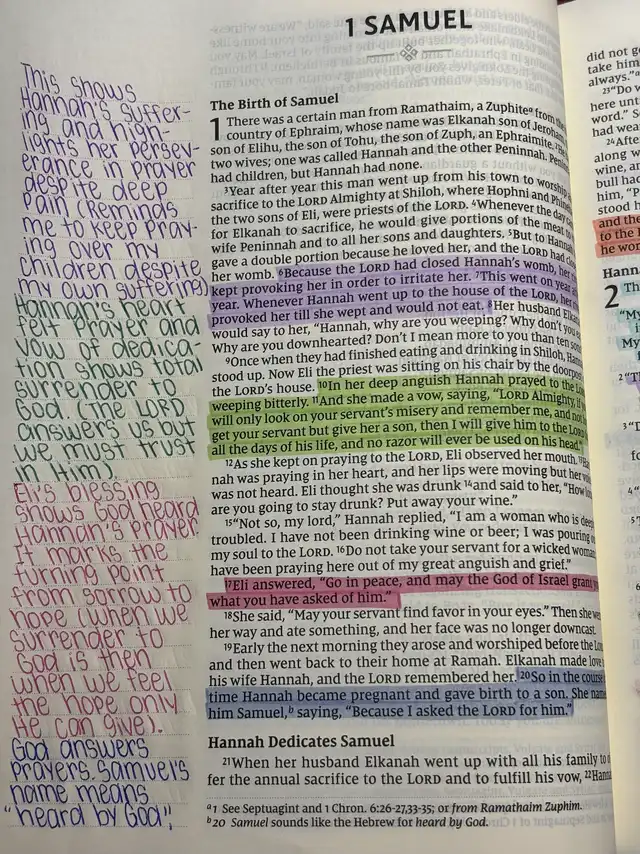 1 SAMUEL
This shows
Hannah's suffer-
ing and high-
lights her persev-
erance in prayer
despite deep
pain (Reminds
me to keep pray-
ing over my
children despite
my own suffering)
Hannah's heart
felt prayer and
vow of dedica-
tion shows total
surrender to
God. (The LORD
answers us but
we must trust
in Him).
Eli's blessing
shows God heard
Hannah's prayer.
It marks the
turning point
from sorrow to
hope (when we
surrender to
God is then
when we feel
the hope only
He can give).
God answers
prayers. Samuel's
name means
"heard by God".
The Birth of Samuel
1 There was a certain man from Ramathaim, a Zuphite a from the
country of Ephraim, whose name was Elkanah son of Jeroham,
son of Elihu, the son of Tohu, the son of Zuph, an Ephraimite.
two wives; one was called Hannah and the other Peninnah.
had children, but Hannah had none.
3Year after year this man went up from his town to worship
sacrifice to the LORD Almighty at Shiloh, where Hophni and
the two sons of Eli, were priests of the LORD. 4Whenever the day
for Elkanah to sacrifice, he would give portions of the meat to
wife Peninnah and to all her sons and daughters. 5But to Hannah
gave a double portion because he loved her, and the LORD had
her womb. 6Because the LORD had closed Hannah's womb, her
kept provoking her in order to irritate her. 7This went on year
year. Whenever Hannah went up to the house of the LORD, her
provoked her till she wept and would not eat. 8Her husband
would say to her, "Hannah, why are you weeping? Why don't you
Why are you downhearted? Don't I mean more to you than ten
9Once when they had finished eating and drinking in Shiloh,
stood up. Now Eli the priest was sitting on his chair by the
the LORD's house. 10In her deep anguish Hannah prayed to the
weeping bitterly. 11And she made a vow, saying, "LORD Almighty, if
will only look on your servant's misery and remember me, and not
get your servant but give her a son, then I will give him to the LORD
all the days of his life, and no razor will ever be used on his head."
12As she kept on praying to the LORD, Eli observed her mouth.
nah was praying in her heart, and her lips were moving but her
was not heard. Eli thought she was drunk 14and said to her, "How
are you going to stay drunk? Put away your wine."
15"Not so, my lord," Hannah replied, "I am a woman who is
troubled. I have not been drinking wine or beer; I was pouring
my soul to the LORD. 16Do not take your servant for a wicked woman
have been praying here out of my great anguish and grief."
17Eli answered, "Go in peace, and may the God of Israel grant
what you have asked of him."
18She said, "May your servant find favor in your eyes." Then she
her way and ate something, and her face was no longer downcast.
19Early the next morning they arose and worshiped before the
and then went back to their home at Ramah. Elkanah made love
his wife Hannah, and the LORD remembered her. 20So in the course
time Hannah became pregnant and gave birth to a son. She
him Samuel,b saying, "Because I asked the LORD for him."
Hannah Dedicates Samuel
21When her husband Elkanah went up with all his family to
fer the annual sacrifice to the LORD and to fulfill his vow, 22
a 1 See Septuagint and 1 Chron. 6:26-27,33-35; or from Ramathaim Zuphim.
b 20 Samuel sounds like the Hebrew for heard by God.
did not
take him
always."
23"Do
here
word."
had
24After
along
wine,
bull had
him,
stood
and the
to the
he
2
"My
My
2
3
4
5